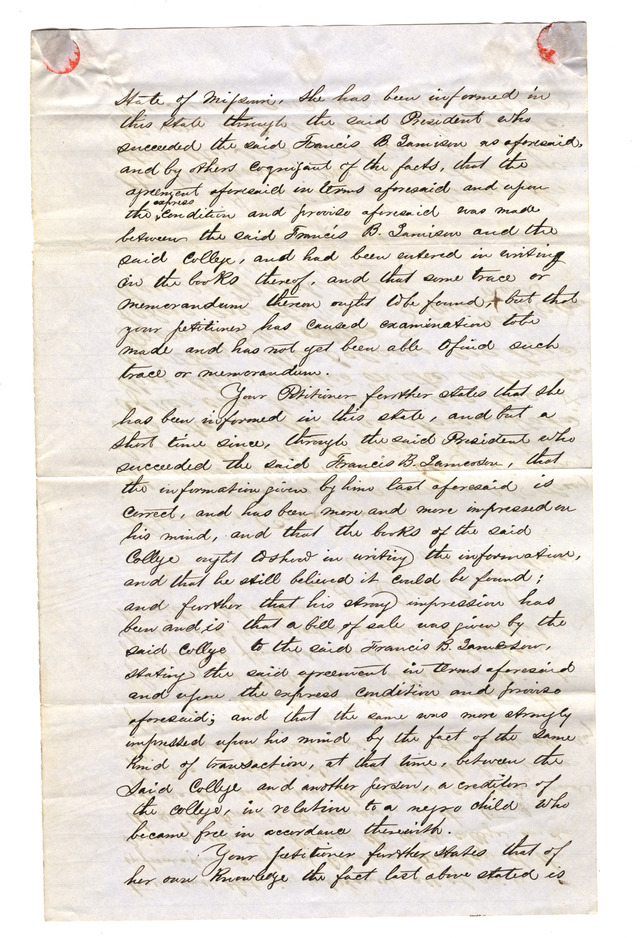 State of Missouri, she has been informed in
this state through the said President who
succeeded the said Francis B. Jamison as aforesaid,
and by others cognizant of the facts, that the
agreement aforesaid in terms aforesaid and upon
the express condition and proviso aforesaid was made
between the said Francis B. Jamison and the
said College, and had been entered in writing
in the books thereof, and that some trace or
memorandum thereon ought to be found, but that
your petitioner has caused examination to be
made and has not yet been able to find such
trace or memorandum.
Your Petitioner further states that she
has been informed in this state, and but a
short time since, through the said President who
succeeded the said Francis B. Jameson, that
the information given by him last aforesaid is
correct, and has been more and more impressed on
his mind, and that the books of the said
College ought to show in writing the information,
and that he still believed it could be found;
and further that his strong impression has
been and is that a bill of sale was given by the
said College to the said Francis B. Jameson,
stating the said agreement in terms aforesaid
and upon the express condition and proviso
aforesaid; and that the same was more strongly
impressed upon his mind by the fact of the same
kind of transaction, at that time, between the
said College and another person, a creditor of
the college, in relation to a negro child who
became free in accordance therewith.
Your petitioner further states that of
her own knowledge the fact last above stated is